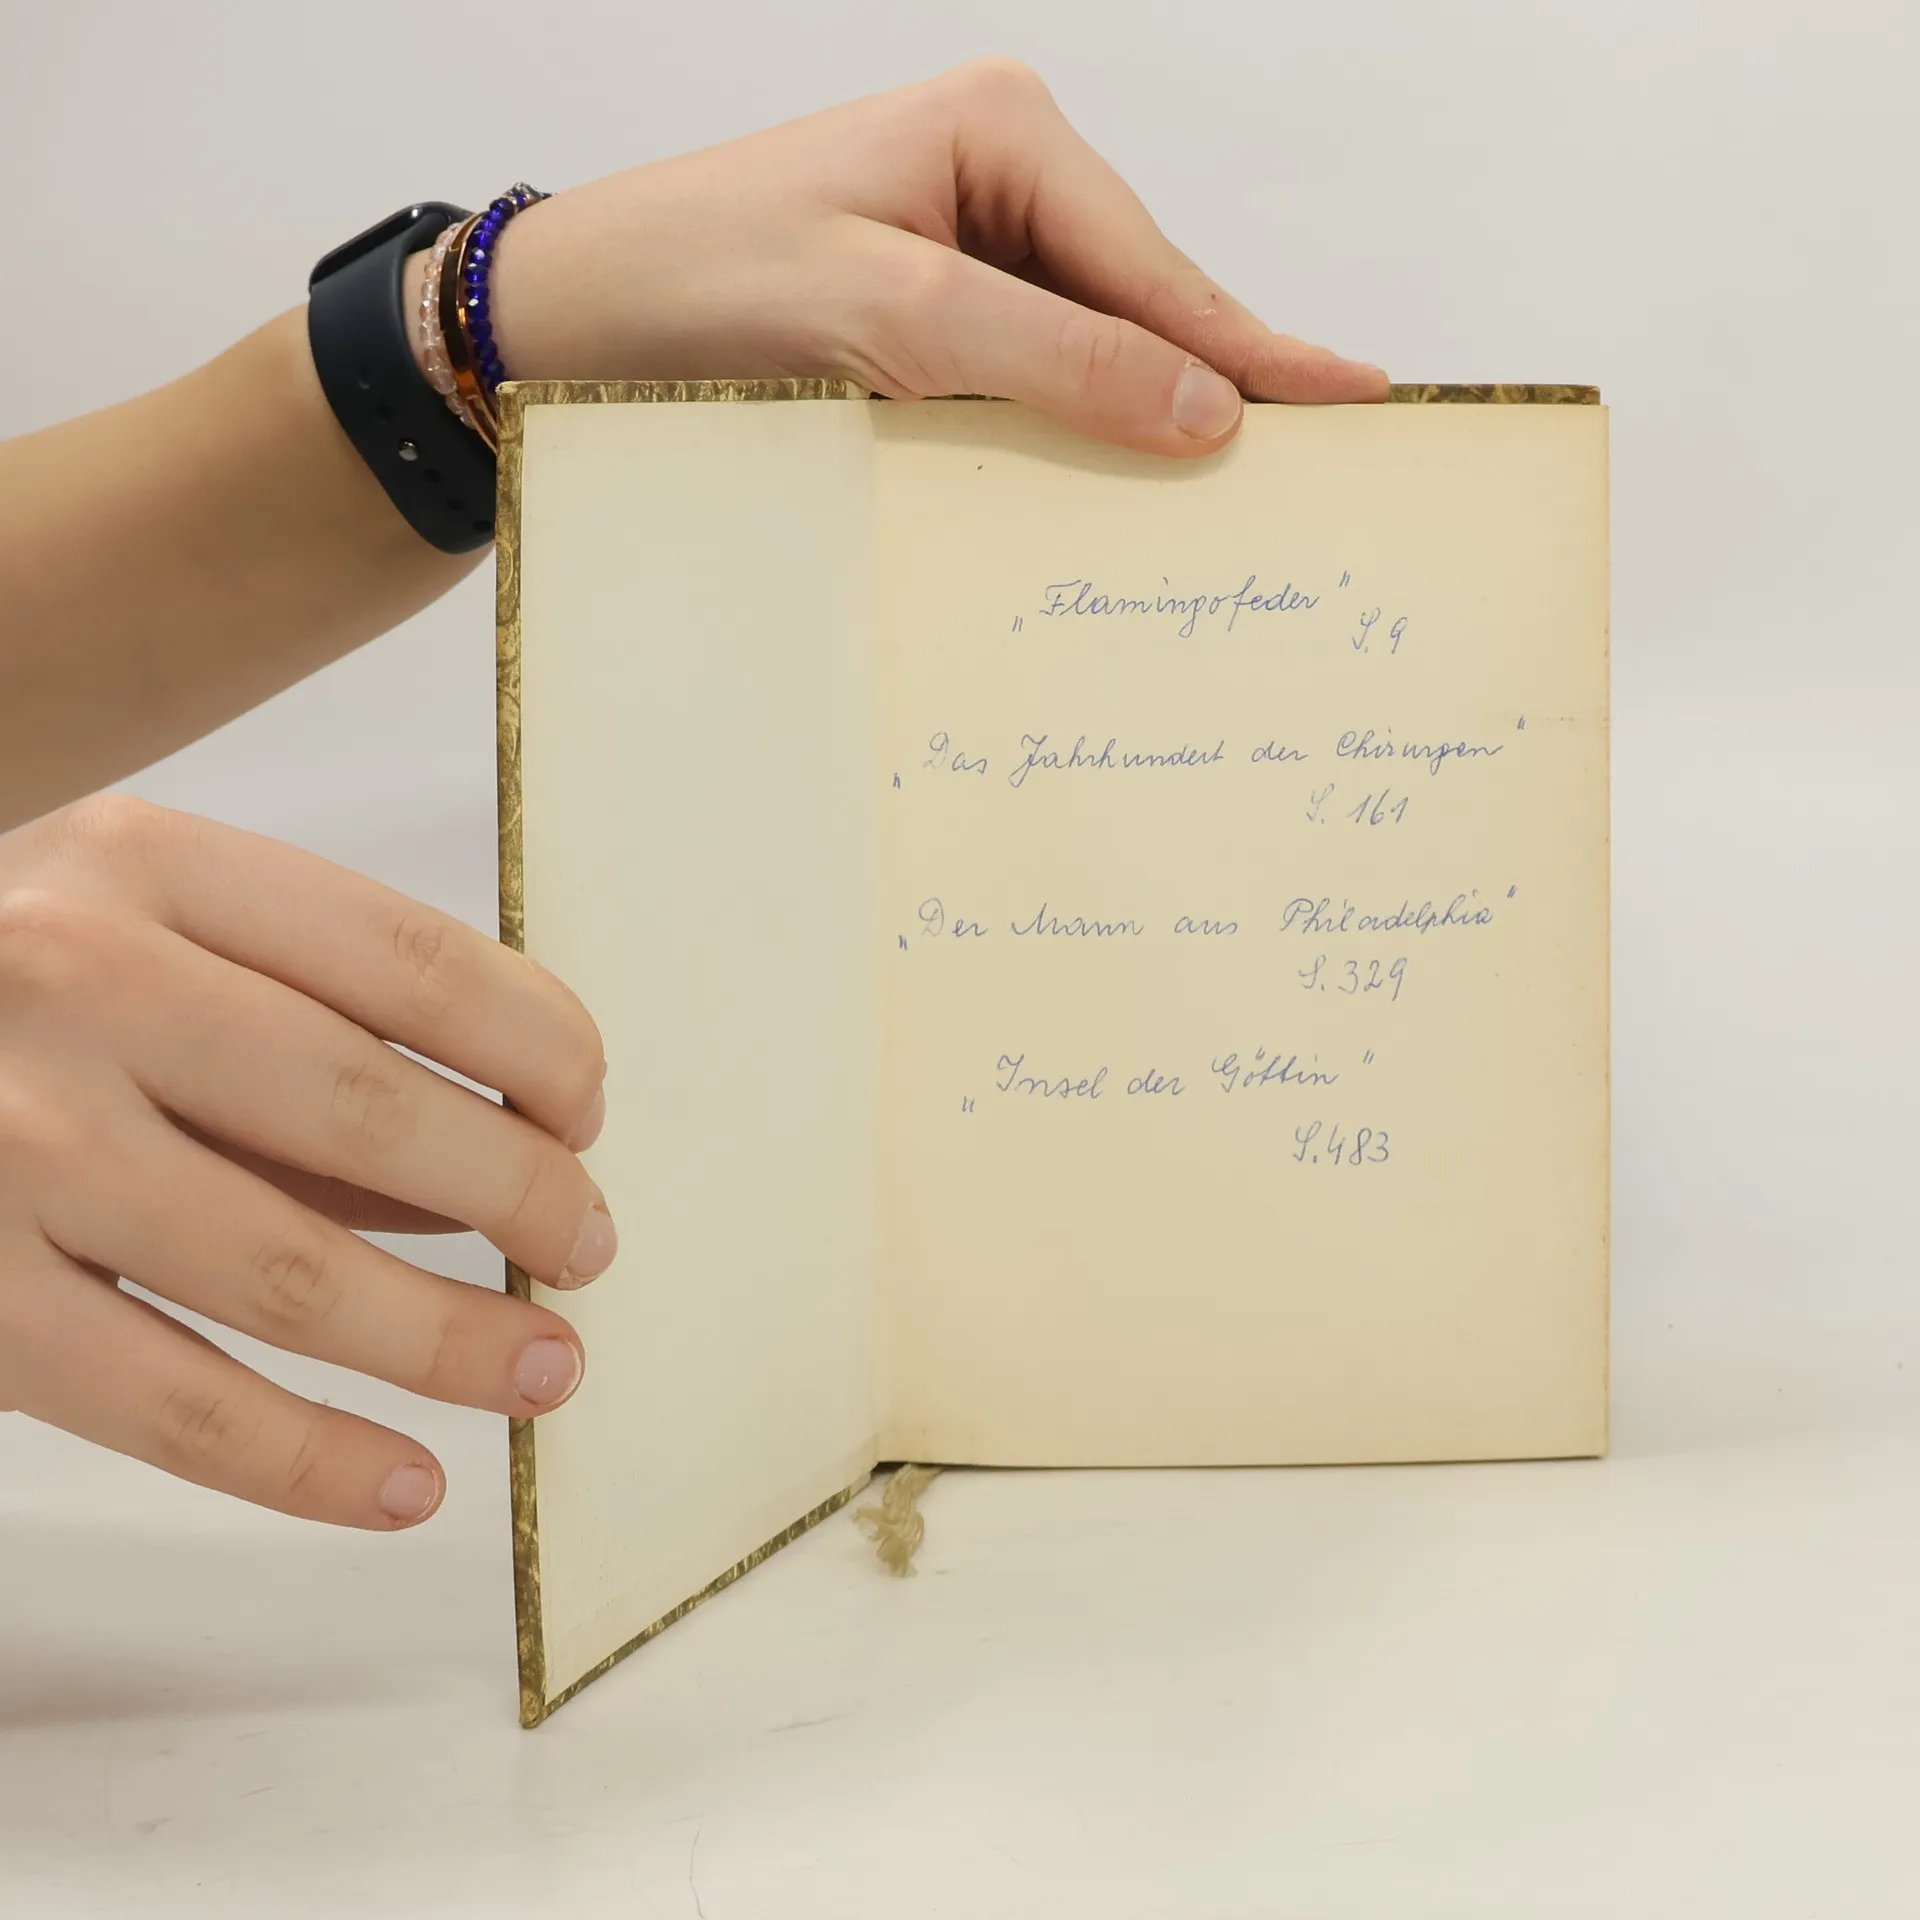 „Flamingofeder"
S. 9
„Das Jahrhundert der Chirurgen"
S. 161
„Der Mann aus Philadelphia"
S. 329
„Insel der Göttin"
S. 483